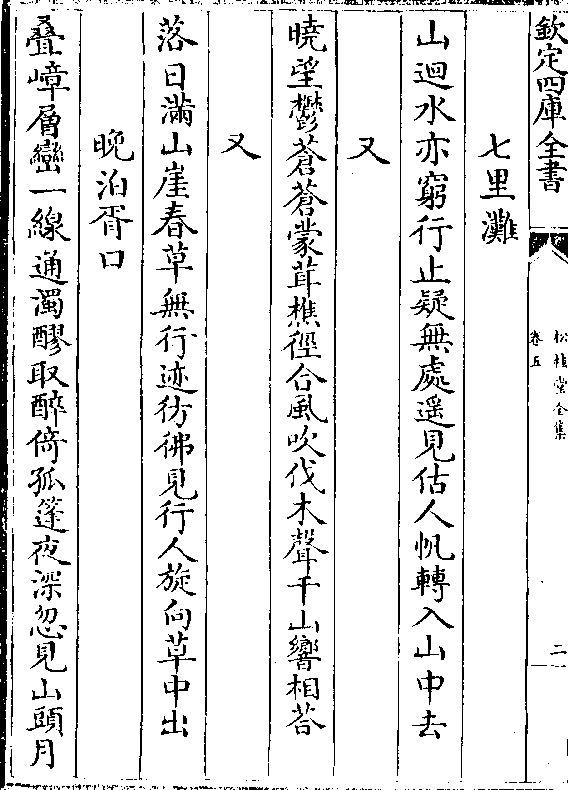 欽定四庫全書
松桂堂全集
卷五
二
七里灘
山迴水亦窮行止疑無處遥見估人帆轉入山中去
又
曉望鬱蒼蒼蒙茸樵徑合風吹伐木聲千山響相荅
又
落日滿山崖春草無行迹彷彿見行人旋向草中出
晚泊胥口
疊嶂層巒一線通濁醪取醉倚孤篷夜深忽見山頭月